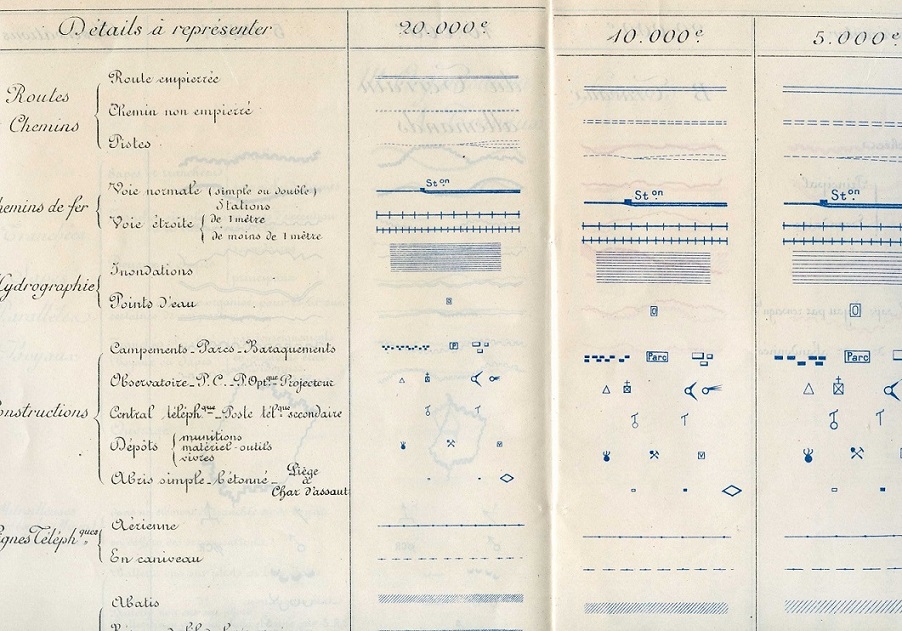 Détails à représenter 20.000e 10.000e 5.000e
Routes
Chemins
Route empierrée
Chemin non empierré
Pistes
hemins de fer
Voie normale (simple ou double)
Stations
Voie étroite { de 1 mètre
de moins de 1 mètre
Ston Ston Ston
Hydrographie
Inondations
Points d'eau
onstructions
Campements - Parcs - Baraquements
P Parc Parc
Observatoire - P.C. - P. Optque Projecteur
Central téléphque - Poste télque secondaire
Dépôts { munitions
matériel - outils
vivres
Abris simple - bétonné - Piège
à
Char d'assaut
ignes Téléphques
Aérienne
En caniveau
Abatis